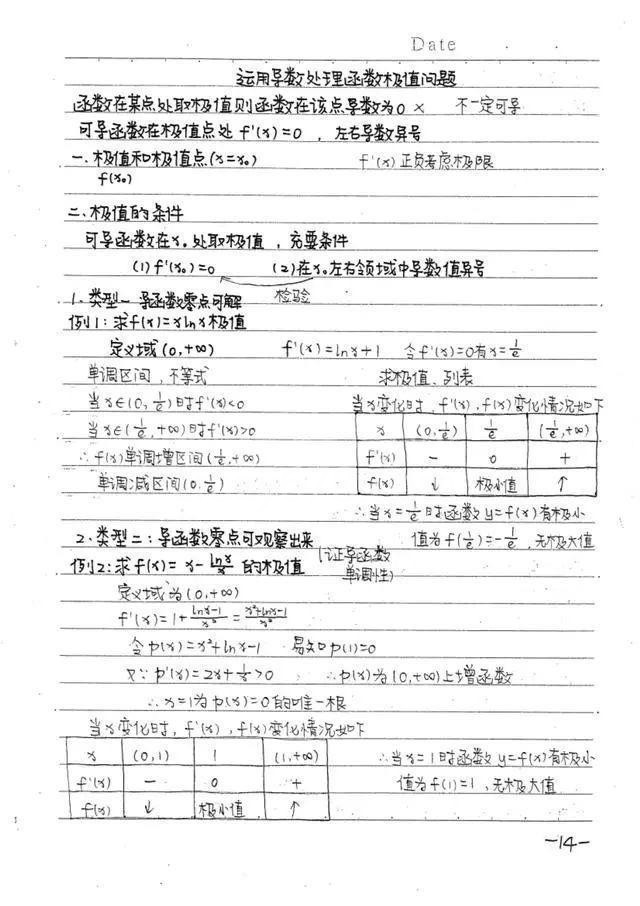 Date
运用导数处理函数极值问题
函数在某点处取极值则函数在该点导数为0 × 不一定可导
可导函数在极值点处 f'(x)=0 , 左右导数异号
一.极值和极值点(x=x₀) f'(x)正负考虑极限
f(x₀)
二.极值的条件
可导函数在x₀处取极值 , 充要条件
(1) f'(x₀)=0 (2)在x₀左右领域中导数值异号
检验
1.类型一 导函数零点可解
例1:求f(x)=xlnx极值
定义域(0,+∞) f'(x)=lnx+1 令f'(x)=0有x=1/e
单调区间,不等式 求极值、列表
当x∈(0,1/e)时f'(x)<0 当x变化时,f'(x),f(x)变化情况如下
当x∈(1/e,+∞)时f'(x)>0 x (0,1/e) 1/e (1/e,+∞)
∴f(x)单调增区间(1/e,+∞) f'(x) − 0 +
单调减区间(0,1/e) f(x) ↓ 极小值 ↑
∴当x=1/e时函数y=f(x)有极小
值为f(1/e)=-1/e,无极大值
2.类型二:导函数零点可观察出来
(证导函数
单调性)
例2:求f(x)=x-lnx/x的极值
定义域为(0,+∞)
f'(x)=1+(lnx-1)/x²=(x²+lnx-1)/x²
令p(x)=x²+lnx-1 易知p(1)=0
又∵p'(x)=2x+1/x>0 ∴p(x)为(0,+∞)上增函数
∴x=1为p(x)=0的唯一根
当x变化时,f'(x),f(x)变化情况如下
x (0,1) 1 (1,+∞) ∴当x=1时函数y=f(x)有极小
f'(x) − 0 + 值为f(1)=1,无极大值
f(x) ↓ 极小值 ↑
-14-